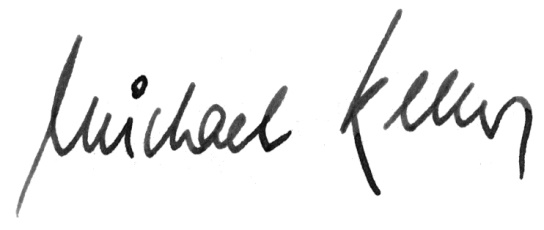 Michael Keller